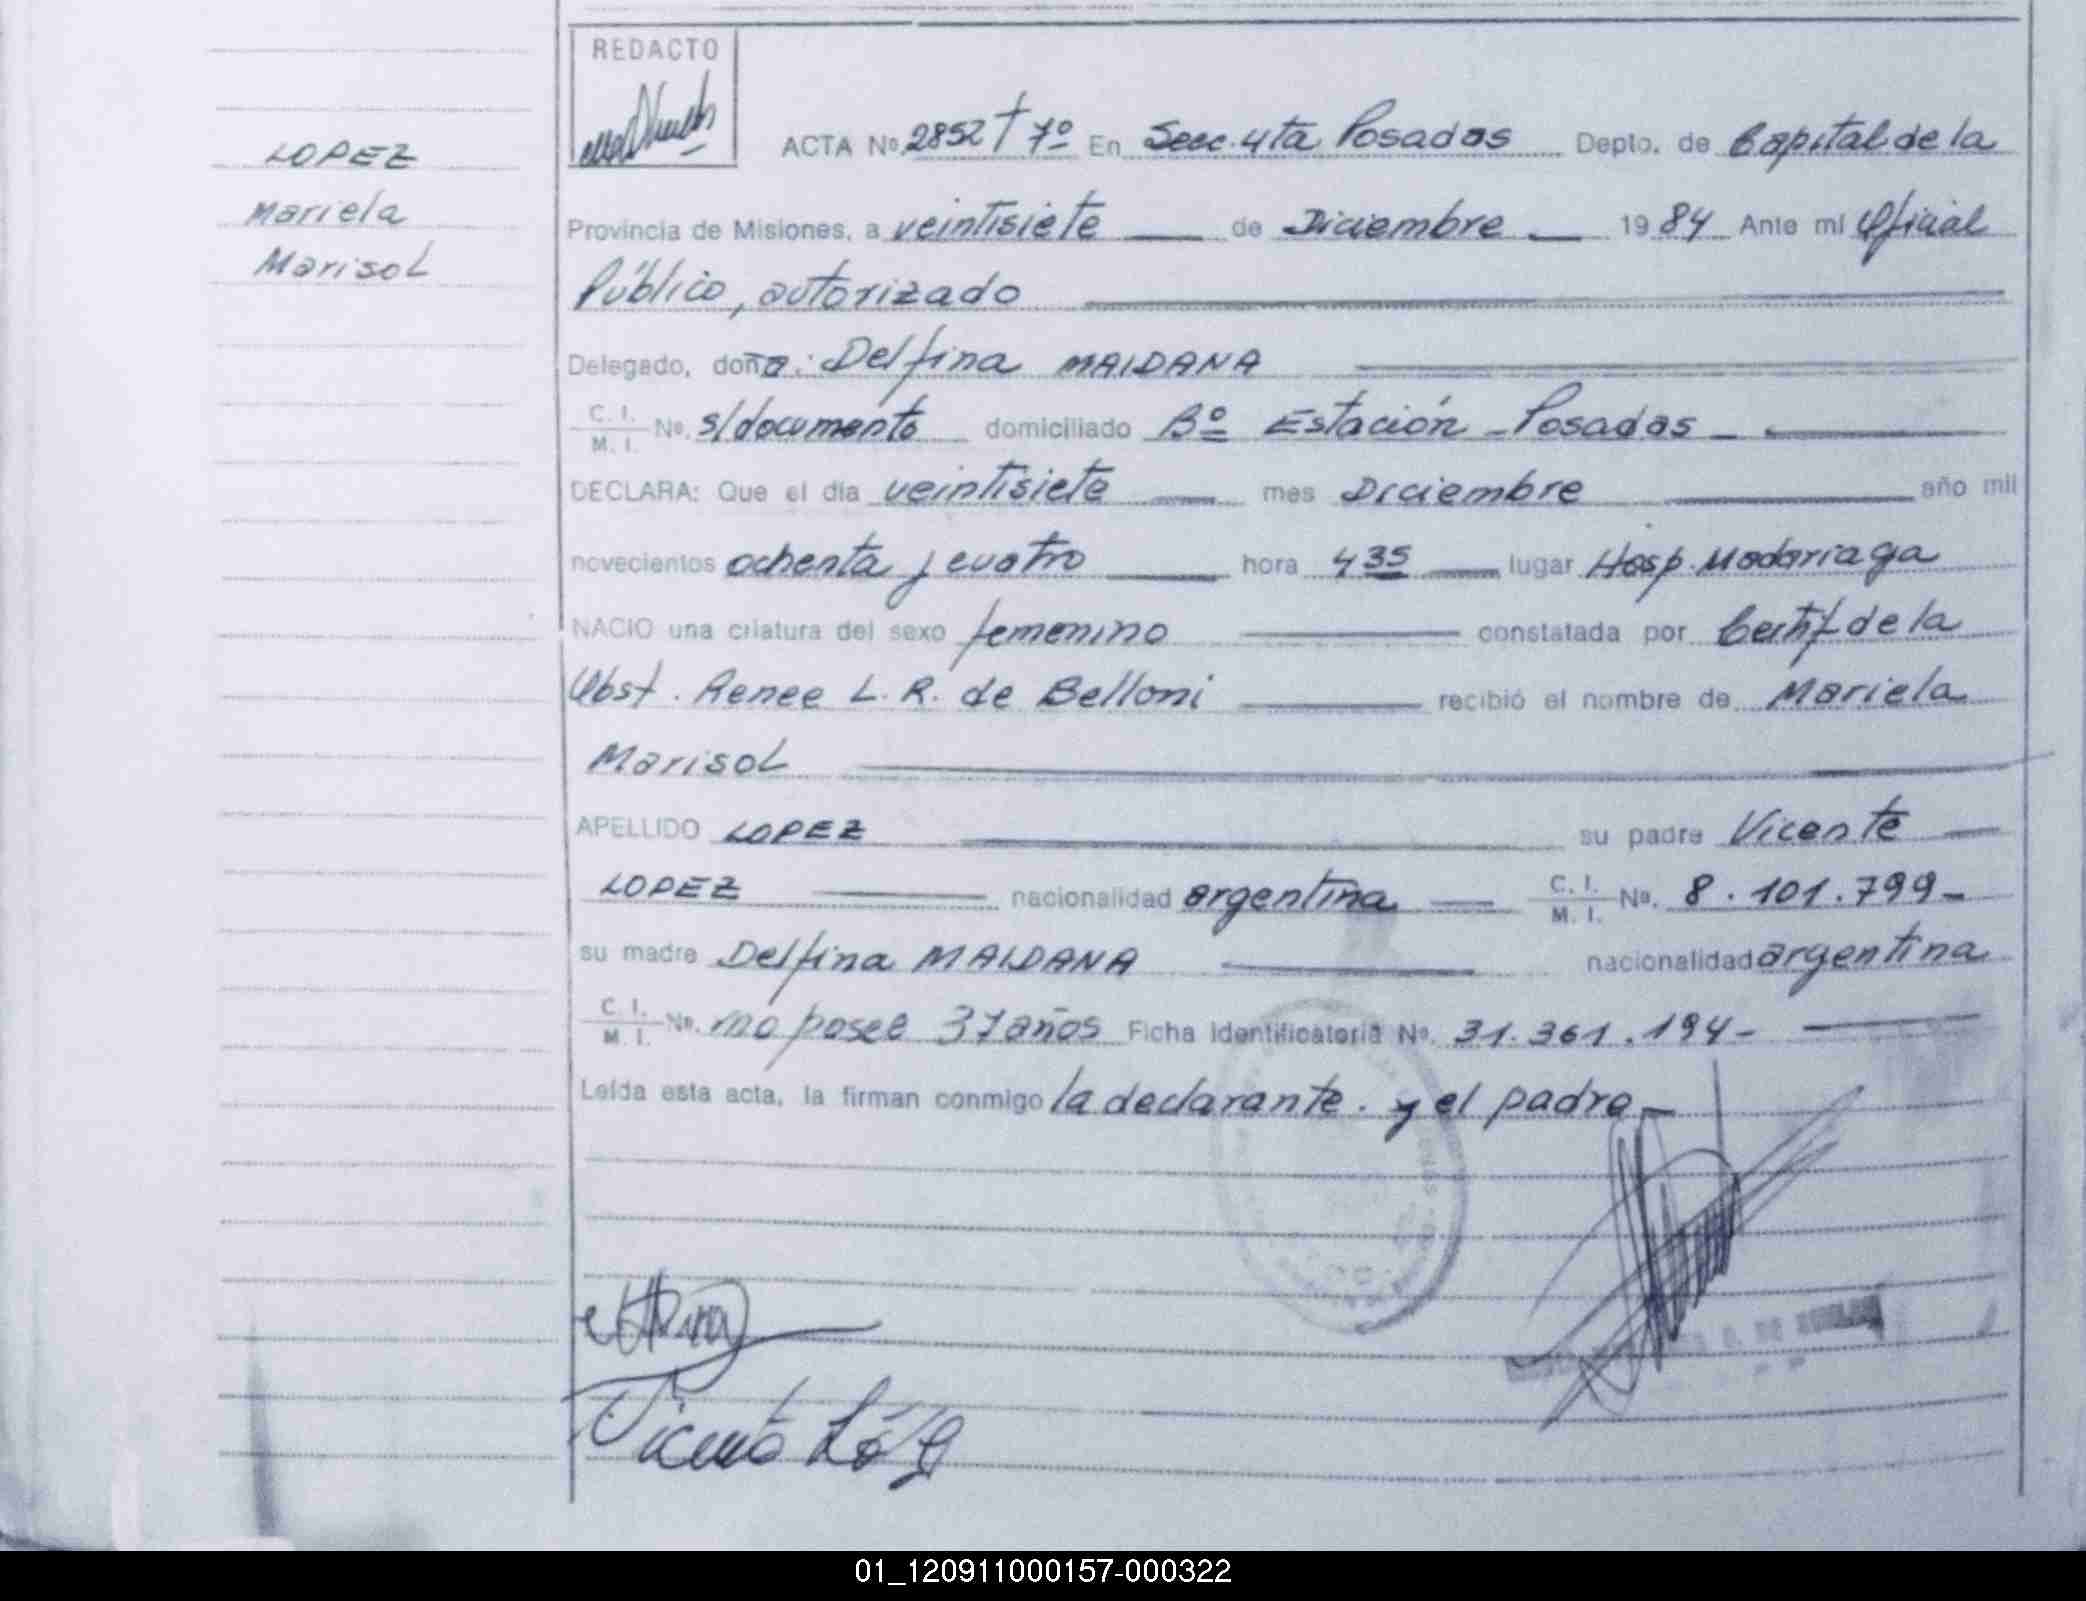 REDACTO
LOPEZ
Mariela
Marisol
ACTA Nº 2852 Tº 7º En Secc. 4ta Posadas Depto. de Capital de la
Provincia de Misiones, a veintisiete de Diciembre 1984 Ante mí Oficial
Público, autorizado
Delegado, doña: Delfina MAIDANA
C. I. / M. I. Nº. s/documento domiciliado Bº Estación - Posadas -
DECLARA: Que el día veintisiete mes Diciembre año mil
novecientos ochenta y cuatro hora 4 35 lugar Hosp. Madariaga
NACIO una criatura del sexo femenino constatada por Certif de la
Obst. Renee L. R. de Belloni recibió el nombre de Mariela
Marisol
APELLIDO LOPEZ su padre Vicente
LOPEZ nacionalidad argentina C. I. / M. I. Nº. 8.101.799-
su madre Delfina MAIDANA nacionalidad argentina
C. I. / M. I. Nº. no posee 37 años Ficha Identificatoria Nº. 31.361.194-
Leída esta acta, la firman conmigo la declarante. y el padre-
Vicente López
01_120911000157-000322